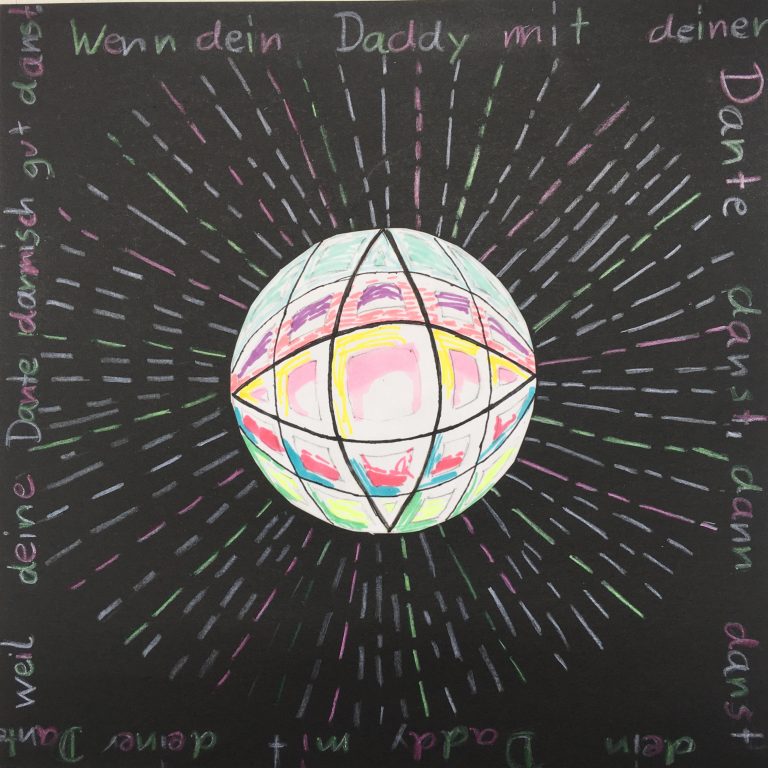 Wenn dein Daddy mit deiner
Dante danst, dann danst
dein Daddy mit deiner Dante
weil deine Dante darmisch gut danst.